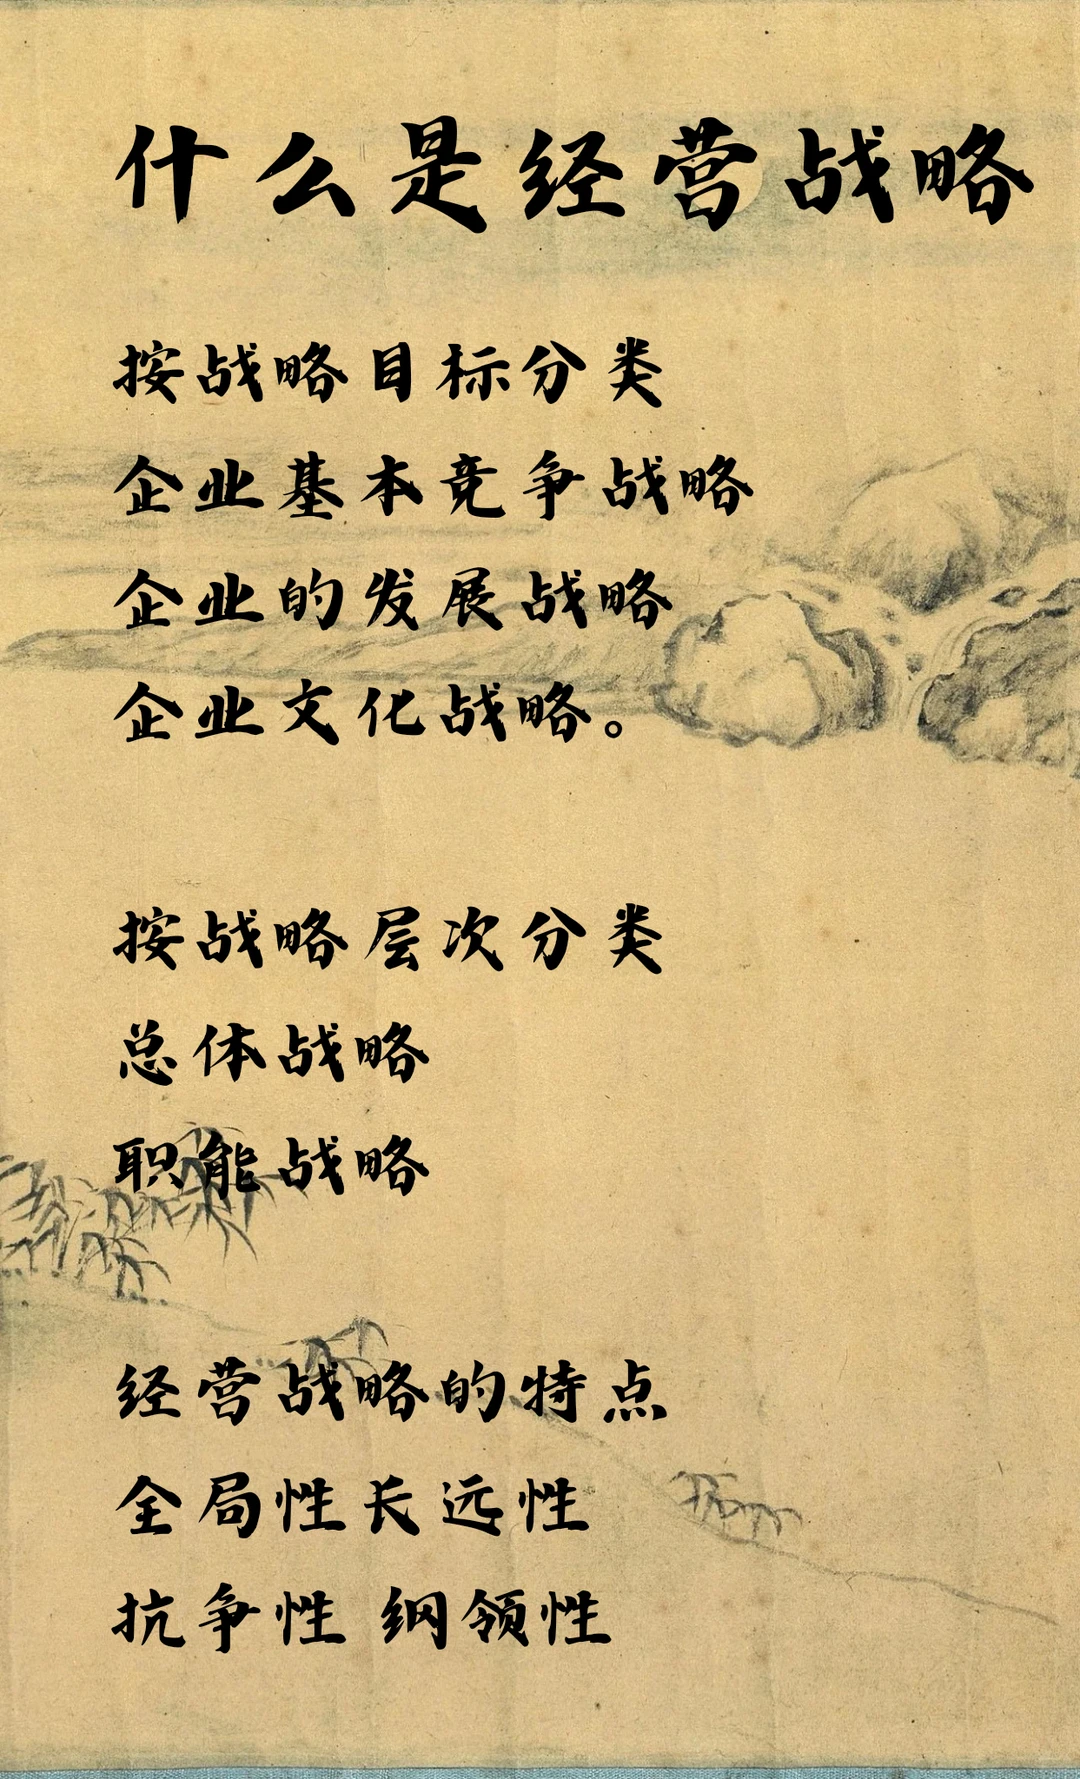 什么是经营战略
按战略目标分类
企业基本竞争战略
企业的发展战略
企业文化战略。
按战略层次分类
总体战略
职能战略
经营战略的特点
全局性长远性
抗争性 纲领性